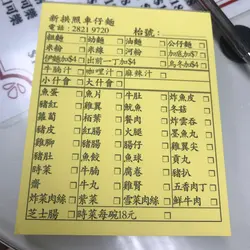 新拱照車仔麵
電話：2821 9720 枱號：
粗麵□ 幼麵□ 油麵□ 公仔麵□
米粉□ 米線□ 河粉□
伊麵加$4□ 出前一丁加$4□ 烏冬加$4□
牛腩汁□ 咖喱汁□ 麻辣汁□
小什會□ 大什會□
魚蛋□ 魚片□ 牛肚□ 炸魚皮□
豬紅□ 雞翼□ 魷魚□ 冬菇□
蘿蔔□ 栢葉□ 炸雲吞□
豬皮□ 紅腸□ 墨魚丸□
雞腳□ 腸仔□ 蟹柳□
豬腩□ 魚球□ 貢丸□
豬腸□ 牛筋□ 腐卷□ 豬扒□
時菜□ 雞腎□ 五香肉丁□
齋□ 牛丸□ 雪菜肉絲□ 鮮牛肉□
炸菜肉絲□ 紫菜□
芝士腸□ 時菜每碗18元□